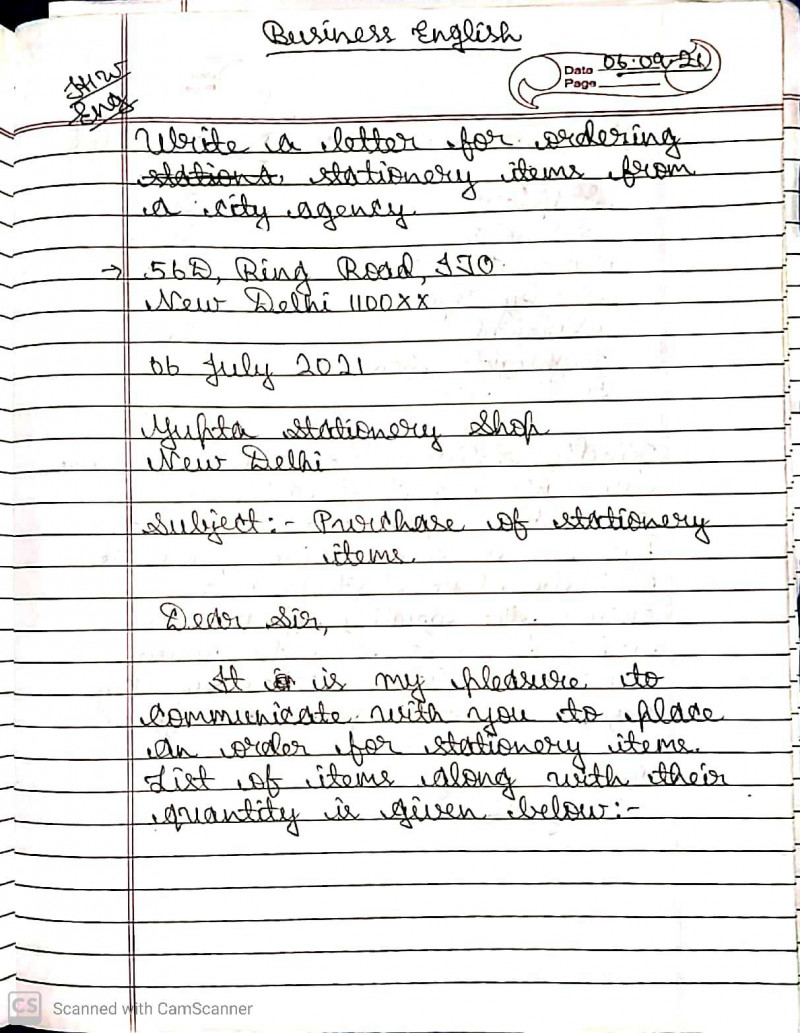 Business English
H/W
Eng
Date 06.09.21
Page
Write a letter for ordering
stationery items from
a city agency.
→ 56D, Ring Road, ITO
New Delhi 1100XX
06 July 2021
Gupta stationery Shop
New Delhi
Subject:- Purchase of stationery
items.
Dear Sir,
It is my pleasure to
communicate with you to place
an order for stationery items.
List of items along with their
quantity is given below:-
CS Scanned with CamScanner